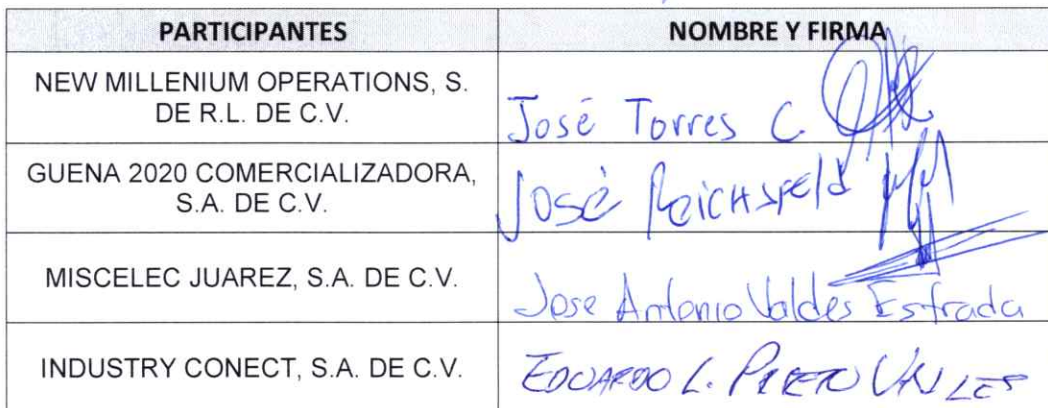 PARTICIPANTES NOMBRE Y FIRMA
NEW MILLENIUM OPERATIONS, S.
DE R.L. DE C.V.
José Torres C.
GUENA 2020 COMERCIALIZADORA,
S.A. DE C.V.
José Reichsfeld
MISCELEC JUAREZ, S.A. DE C.V.
Jose Antonio Valdes Estrada
INDUSTRY CONECT, S.A. DE C.V.
EDUARDO L. PRIETO